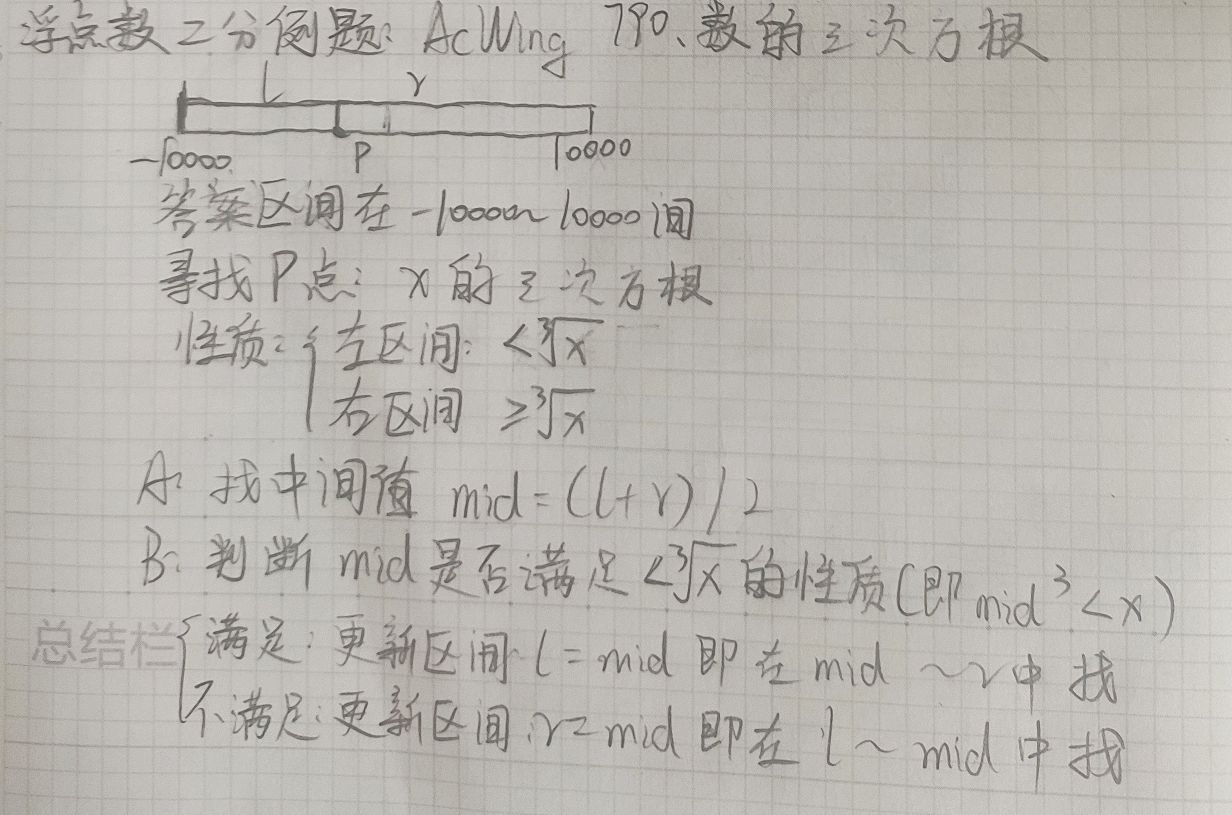 浮点数二分例题: AcWing 790、数的三次方根
l r
-10000 P 10000
答案区间在 -10000~10000间
寻找P点: x的三次方根
性质:{左区间: <∛x
右区间 ≥∛x
A: 找中间值 mid=(l+r)/2
B: 判断 mid是否满足<∛x的性质(即mid³<x)
总结栏{满足: 更新区间 l=mid 即在mid ~r中找
不满足: 更新区间:r=mid即在l~mid中找